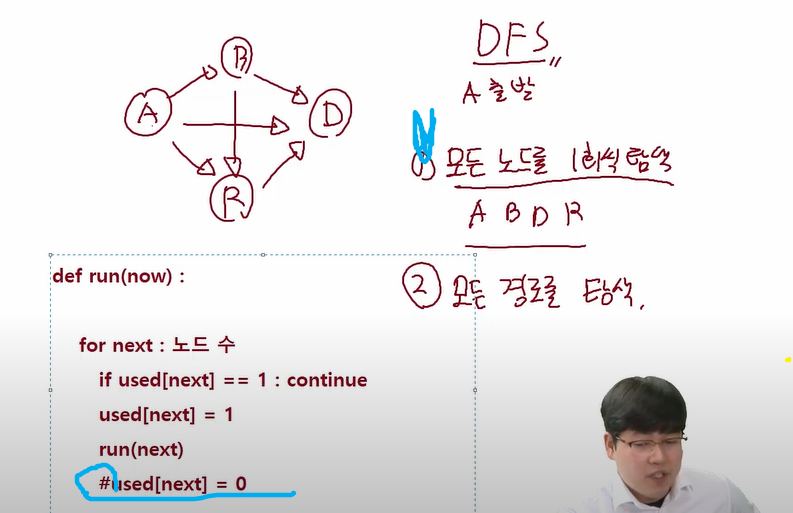 DFS
A 출발
B
A
D
R
1) 모든 노드를 1회씩 탐색
A B D R
② 모든 경로를 탐색.
def run(now) :
for next : 노드 수
if used[next] == 1 : continue
used[next] = 1
run(next)
#used[next] = 0